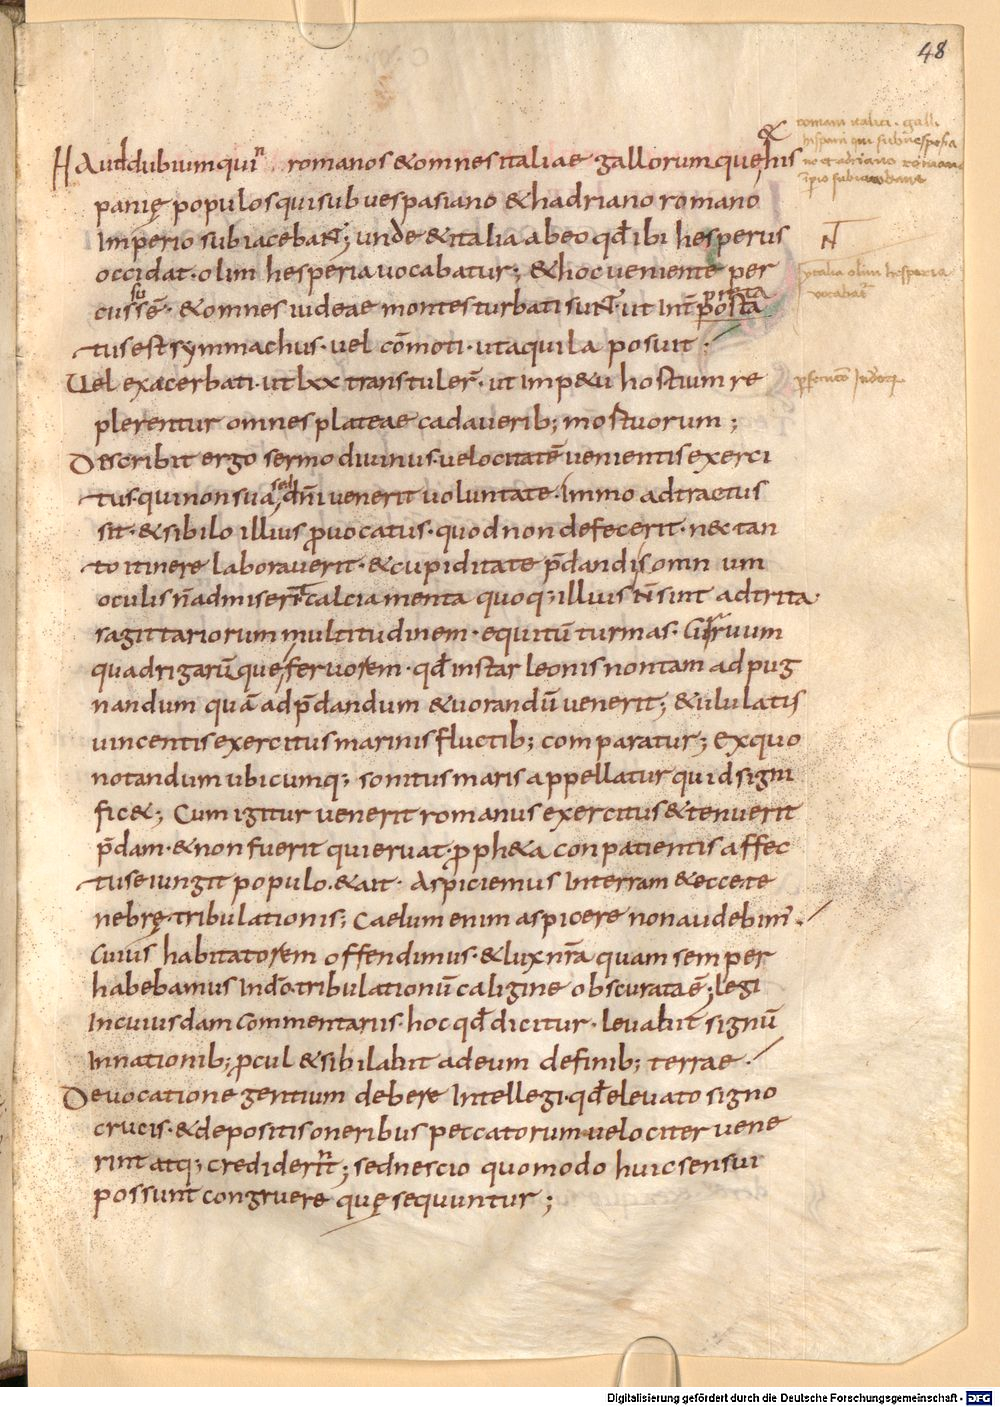 48
HAuddubiumquiⁿ romanos &omnes italiae gallorumque & his
panię populos qui sub uespasiano & hadriano romano
Imperio subiacebant; unde & italia ab eo qđ ibi hesperus
occidat. olim hesperia uocabatur; & hoc ueniente per
cussē. & omnes iudeae montes turbati sunt. ut Int̄p̄
tatus est symmachus. uel cōmoti. ut aquila posuit;
Uel exacerbati. ut lxx transtuler̄. ut imp&u hostium re
plerentur omnes plateae cadauerib; mortuorum;
Describit ergo sermo diuinus. uelocitatē uenientis exerci
tus. qui non sua, sed dn̄i uenerit uoluntate. Immo adtractus
sit. & sibilo illius ꝓuocatus. quod non defecerit. nec tan
to itinere laborauerit. & cupiditate p̄dandi somnum
oculis n̄ admiserit. calciamenta quoq; illius n̄ sint adtrita.
sagittariorum multitudinem. equitū turmas. curruum
quadrigarūque feruorem. qđ instar leonis non tam ad pug
nandum quā ad p̄dandum & uorandū uenerit; & ululatis
uincentis exercitus marinis fluctib; comparatur; Ex quo
notandum ubicumq; sonitus maris appellatur quid signi
fic&; Cum igitur uenerit romanus exercitus & tenuerit
p̄dam. & non fuerit qui eruat. ꝓph&a conpatientis affec
tu se iungit populo. & ait. Aspiciemus In terram & ecce te
nebrę tribulationis; Caelum enim aspicere non audebim̄.
Cuius habitatorem offendimus. & lux nr̄a quam semper
habebamus In dō. tribulationū caligine obscurata ē; legi
In cuiusdam commentariis. hoc qđ dicitur. leuabit signū
In nationib; ꝓcul & sibilabit ad eum de finib; terrae.
De uocatione gentium debere Intellegi. qđ eleuato signo
crucis. & depositis oneribus peccatorum uelociter uene
rint atq; crediderint; sed nescio quomodo huic sensui
possunt congruere quę sequuntur;
romani italici. galli
hispani qui sub uespesia
no et adriano roman
īpio subiacebant
N̄
ytalia olim hesperia
vocabat̄
Digitalisierung gefördert durch die Deutsche Forschungsgemeinschaft - DFG